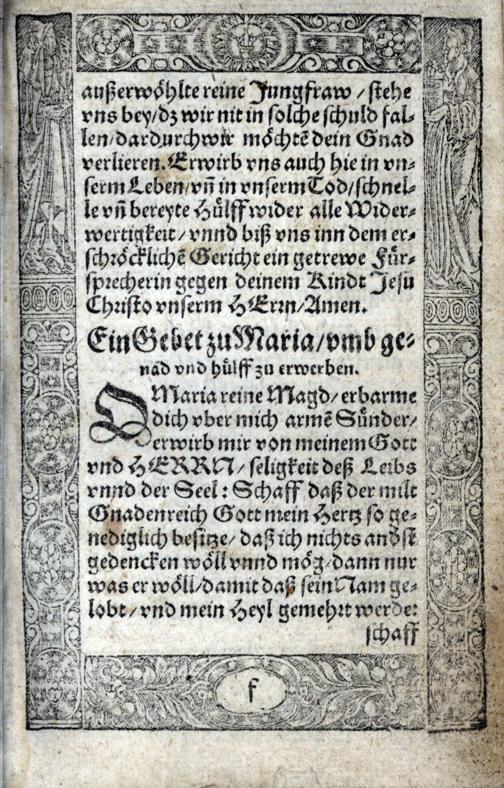 außerwöhlte reine Jungfraw / stehe
vns bey / dz wir nit in solche schuld fal-
len / dardurch wir möchtē dein Gnad
verlieren. Erwirb vns auch hie in vn-
serm Leben / vñ in vnserm Tod / schnel-
le vñ bereyte Hülff wider alle Wider-
wertigkeit / vnnd biß vns inn dem er-
schröcklichē Gericht ein getrewe Für-
sprecherin gegen deinem Kindt Jesu
Christo vnserm HErrn / Amen.
Ein Gebet zu Maria / vmb ge-
nad vnd hülff zu erwerben.
O Maria reine Magd / erbarme
dich vber mich armē Sünder /
erwirb mir von meinem Gott
vnd HERRN / seligkeit deß Leibs
vnnd der Seel : Schaff daß der milt
Gnadenreich Gott mein Hertz so ge-
nediglich besitze / daß ich nichts andst
gedencken wöll vnnd mög / dann nur
was er wöll / damit daß sein Nam ge-
lobt / vnd mein Heyl gemehrt werde:
schaff
f